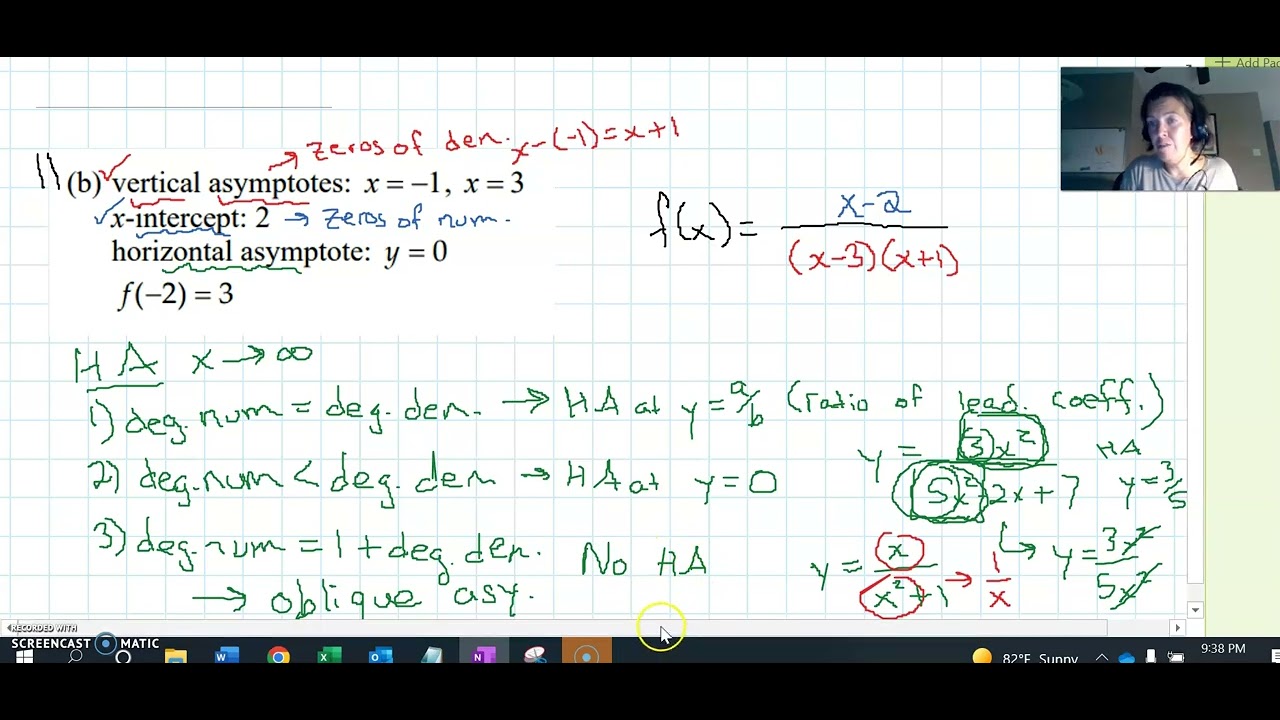 Add Pa
→ zeros of den. x-(-1)=x+1
11 (b) vertical asymptotes: x = −1, x = 3
x-intercept: 2 → zeros of num.
horizontal asymptote: y = 0
f(−2) = 3
f(x) = x-2
(x-3)(x+1)
HA x → ∞
1) deg. num = deg. den. → HA at y = a/b (ratio of lead. coeff.)
2) deg. num < deg. den → HA at y = 0
3) deg. num = 1 + deg. den. No HA
→ oblique asy.
y = 3x²
5x²+2x+7
HA
y = 3/5
↳ y = 3x²
5x²
y = x
x²+1
→ 1
x
RECORDED WITH
SCREENCAST MATIC
82°F Sunny
9:38 PM